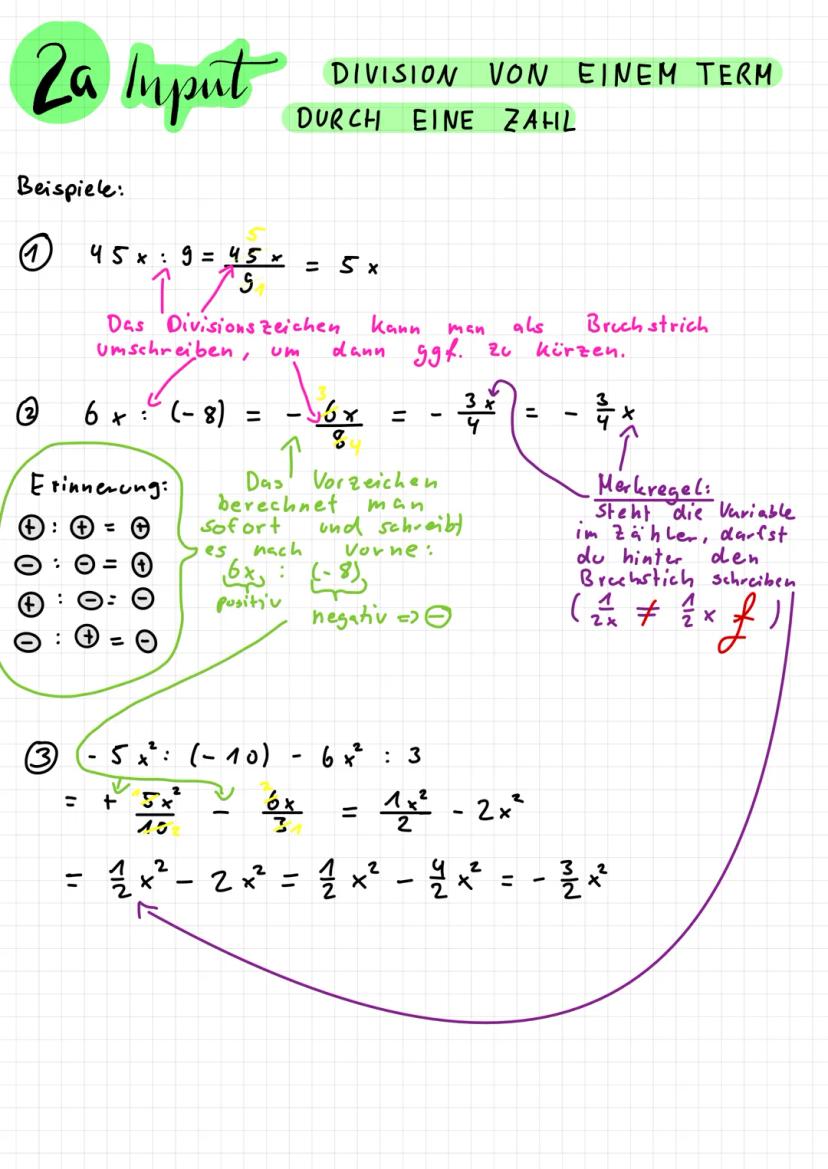 2a Input DIVISION VON EINEM TERM
DURCH EINE ZAHL
Beispiele:
① 45x : 9 = 45x/9 = 5x
5
1
Das Divisionszeichen kann man als Bruchstrich
umschreiben, um dann ggf. zu kürzen.
② 6x : (-8) = - 6x/8 = - 3x/4 = - 3/4 x
3
4
Erinnerung:
⊕ : ⊕ = ⊕
⊖ : ⊖ = ⊕
⊕ : ⊖ = ⊖
⊖ : ⊕ = ⊖
Das Vorzeichen
berechnet man
sofort und schreibt
es nach vorne:
6x : (-8)
positiv
negativ => ⊖
Merkregel:
Steht die Variable
im Zähler, darfst
du hinter den
Bruchstich schreiben
( 1/2x ≠ 1/2 x f )
③ - 5x² : (-10) - 6x² : 3
= + 5x²/10 - 6x/3 = 1x²/2 - 2x²
1
2
2
1
= 1/2 x² - 2x² = 1/2 x² - 4/2 x² = - 3/2 x²